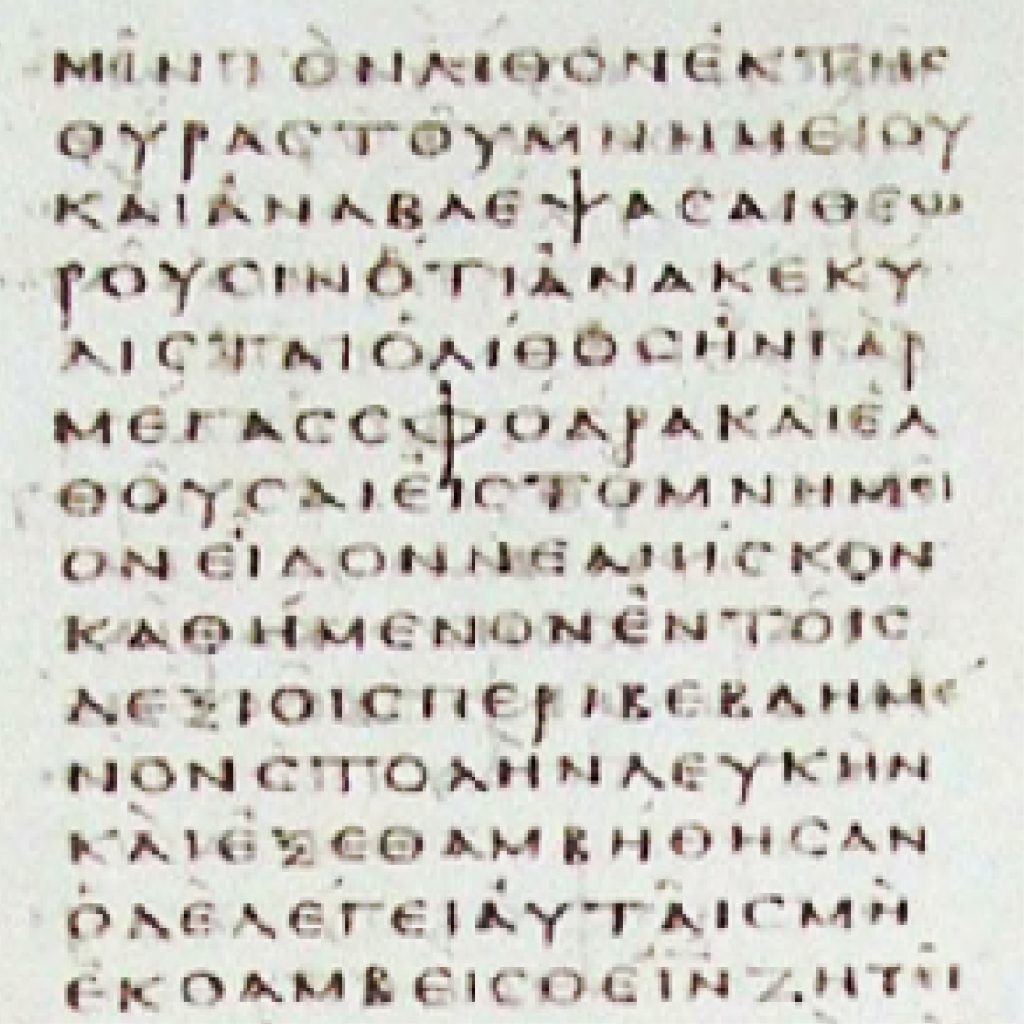 ΜΙΝΤΟΝΛΙΘΟΝΕΚΤΗC
ΘΥΡΑCΤΟΥΜΝΗΜΕΙΟΥ
ΚΑΙΑΝΑΒΛΕΨΑCΑΙΘΕΩ
ΡΟΥCΙΝΟΤΙΑΝΑΚΕΚΥ
ΛΙCΤΑΙΟΛΙΘΟCΗΝΓΑΡ
ΜΕΓΑCCΦΟΔΡΑΚΑΙΕΛ
ΘΟΥCΑΙΕΙCΤΟΜΝΗΜΕΙ
ΟΝΕΙΔΟΝΝΕΑΝΙCΚΟΝ
ΚΑΘΗΜΕΝΟΝΕΝΤΟΙC
ΔΕΞΙΟΙCΠΕΡΙΒΕΒΛΗΜΕ
ΝΟΝCΤΟΛΗΝΛΕΥΚΗΝ
ΚΑΙΕΞΕΘΑΜΒΗΘΗCΑΝ
ΟΔΕΛΕΓΕΙΑΥΤΑΙCΜΗ
ΕΚΘΑΜΒΕΙCΘΕΙ̅Ν̅ΖΗΤΕΙ